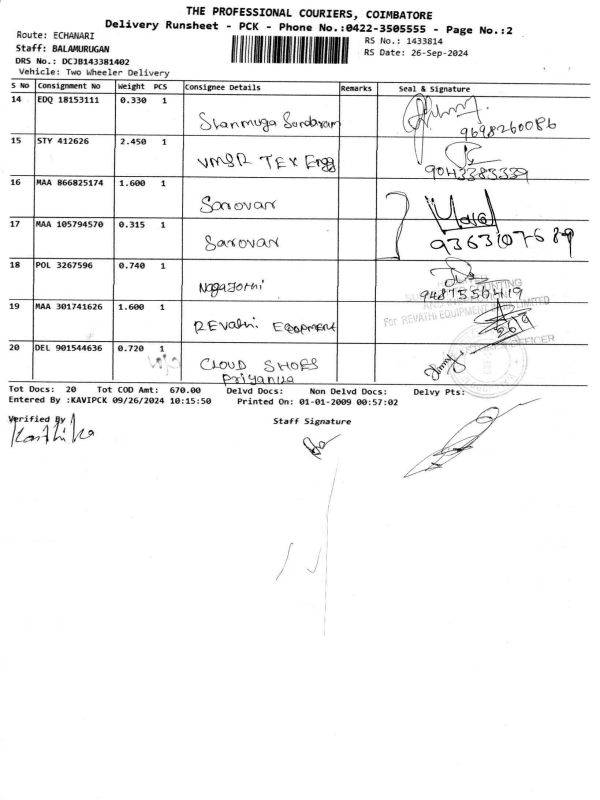 THE PROFESSIONAL COURIERS, COIMBATORE
Delivery Runsheet - PCK - Phone No.:0422-3505555 - Page No.:2
Route: ECHANARI
RS No.: 1433814
Staff: BALAMURUGAN
RS Date: 26-Sep-2024
DRS No.: DCJB143381402
Vehicle: Two Wheeler Delivery
S No Consignment No Weight PCS Consignee Details Remarks Seal & Signature
14 EDQ 18153111 0.330 1
Shanmuga Sundaram
9698260086
15 STY 412626 2.450 1
VMSR TEX Engg
9043383339
16 MAA 866825174 1.600 1
Sarovar
17 MAA 105794570 0.315 1
Sarovar
18 POL 3267596 0.740 1
Nagajothi
9487556419
19 MAA 301741626 1.600 1
For REVATHI EQUIPMENT LIMITED
REvathi EQopment
20 DEL 901544636 0.720 1
CLOUD SHOES
Priyanka
Tot Docs: 20 Tot COD Amt: 670.00 Delvd Docs: Non Delvd Docs: Delvy Pts:
Entered By :KAVIPCK 09/26/2024 10:15:50 Printed On: 01-01-2009 00:57:02
Verified By
Staff Signature
Karthika